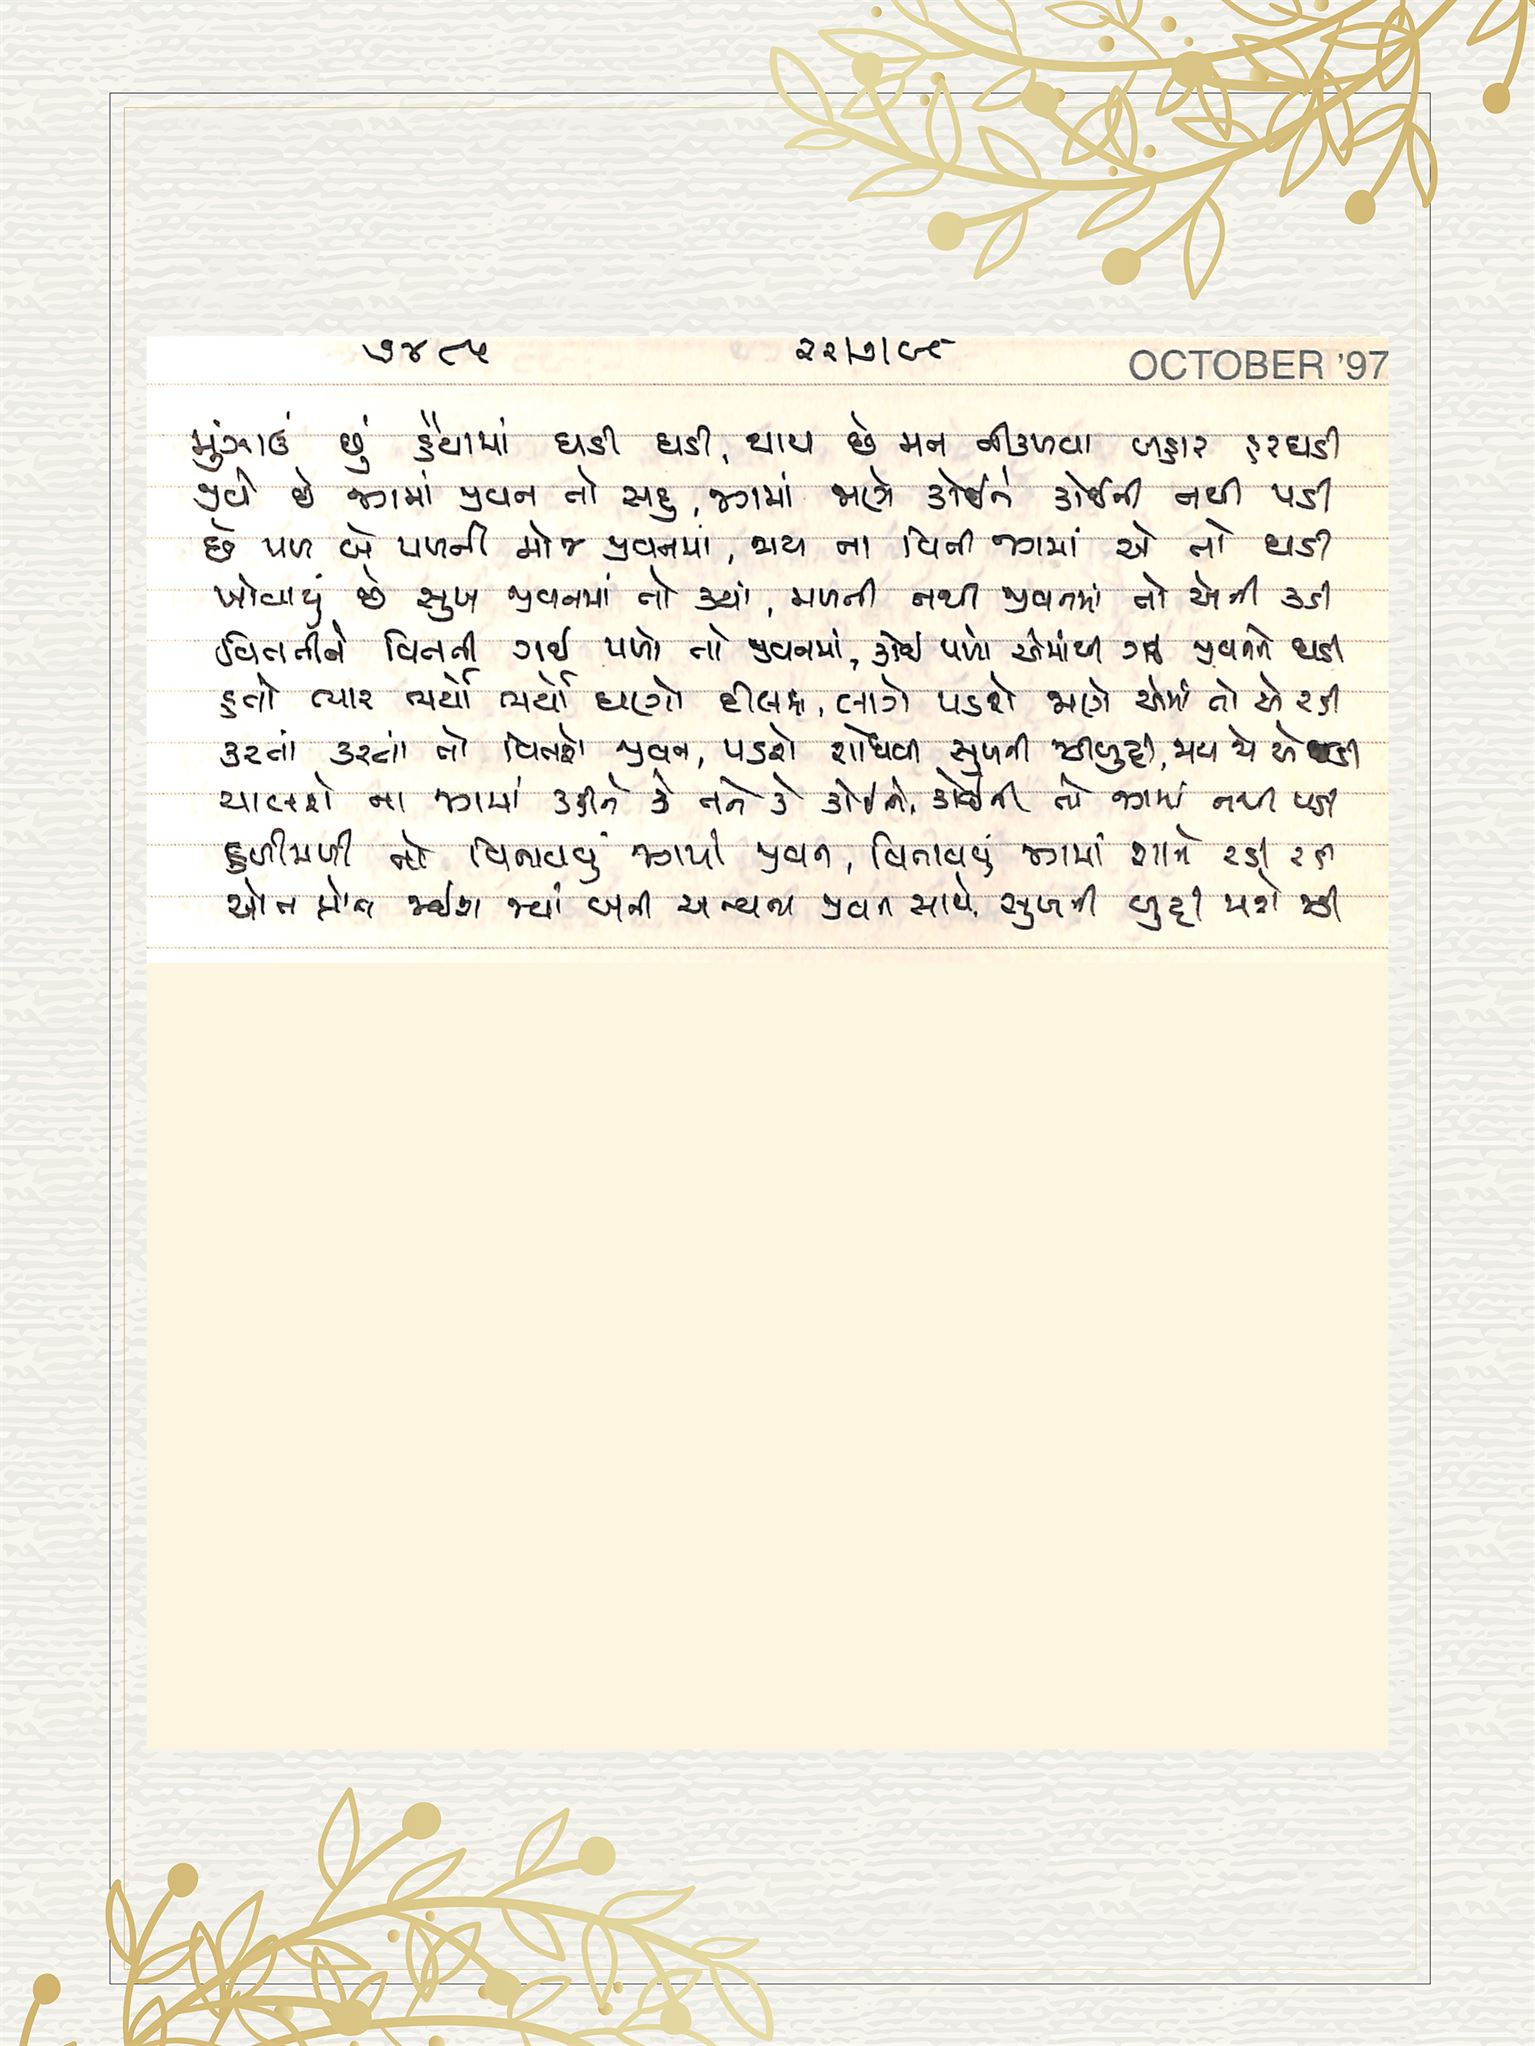 ૭૪૯૫ ૨૨/૭/૯૮ OCTOBER '97
મુંઝાઉં છું હૈયામાં ઘડી ઘડી, થાય છે મન નીકળવા બહાર હરઘડી
જીવે છે જગમાં જીવન તો સહુ, જગમાં જાણે કોઈને કોઈની નથી પડી
છે પળ બે પળની મોજ જીવનમાં, જાય ના વિતી જગમાં એ તો ઘડી
ખોવાયું છે સુખ જીવનમાં તો ક્યાં, મળતી નથી જીવનમાં તો એની કડી
વિતતીને વિતતી ગઈ પળો તો જીવનમાં, કોઈ પળો એમાંથી ગઈ જીવનને ઘડી
હતો ત્યાર જ્યાં જ્યાં ઘણો, લાગે પડશે જાણે એમાં તો એ રડી
કરતાં કરતાં તો વિતશે જીવન, પડશે શોધવી સુખની જડીબુટ્ટી,
ચાલશે ના જગમાં કહીને કે તને કે કોઈને, કોઈની તો જગમાં નથી પડી
હળીમળી તો વિતાવવું જગમાં જીવન, વિતાવવું જગમાં શાને રડી રડી
ઓત પ્રોત જ્યાં બની જીવન સાથે, સુખની બુટ્ટી મળશે જડી